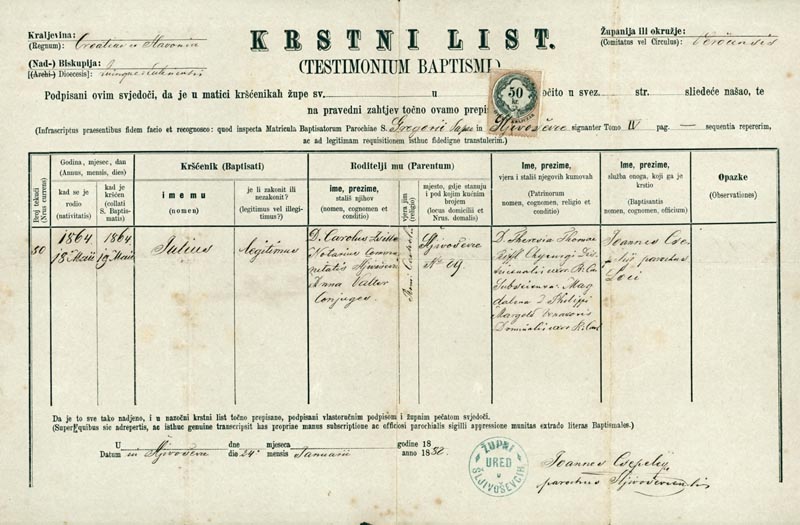 Kraljevina:
(Regnum): Croatiae et Slavoniae
(Nad-) Biskupija:
[(Archi-) Dioecesis]:
KRSTNI LIST.
(TESTIMONIUM BAPTISMI)
Županija ili okružje:
(Comitatus vel Circulus): Veröcensis
Podpisani ovim svjedoči, da je u matici kršćenikah župe sv. u očito u svez. str. sliedeće našao, te
na pravedni zahtjev točno ovamo prepis
50
(Infrascriptus praesentibus fidem facio et recognosco: quod inspecta Matricula Baptisatorum Parochiae S. Gregorii Papae in Šljivoševce signanter Tomo IV pag. — sequentia repererim,
ac ad legitimam requisitionem isthuc fidedigne transtulerim.)
Broj tekući
(Nrus currens)
Godina, mjesec, dan
(Annus, mensis, dies)
kad se je
rodio
(nativitatis)
kad je
kršćen
(collati
S. Baptis-
matis)
Kršćenik (Baptisati)
imemu
(nomen)
je li zakonit ili
nezakonit?
(legitimus vel illegi-
timus?)
Roditelji mu (Parentum)
ime, prezime,
stališ njihov
(nomen, cognomen et
conditio)
vjera jim
(religio)
mjesto, gdje stanuju
i pod kojim kućnim
brojem
(locus domicilii et
Nrus. domalis)
Ime, prezime,
vjera i stališ njegovih kumovah
(Patrinorum
nomen, cognomen, religio et
conditio)
Ime, prezime,
služba onoga, koji ga je
krstio
(Baptisantis
nomen, cognomen, officium)
Opazke
(Observationes)
50
1864
18 Maii
1864
19 Maii
Julius
legitimus
D. Carolus
Notarius Commu
nitatis
Anna Valter
Conjuges
Rom. Cathol.
Šljivoševce
No 29.
D. Theresia Thomae
Chyrurgi Dis
uxor R. Cat.
Mag
dalena D. Philippi
Margold
Dominalis uxor R. Cat.
Joannes Cse-
pelij parochus
Loci
Da je to sve tako nadjeno, i u nazočni krstni list točno prepisano, podpisani vlastoručnim podpisom i župnim pečatom svjedoči.
(Super quibus sic adrepertis, ac isthuc genuine transcripsit has propriae manus subscriptione ac officiosi parochialis sigilli appressione munitas extrado literas Baptismales.)
U dne mjeseca godine 18
Datum in Šljivoševce die 24a mensis Januarii anno 1882.
ŽUPNI
URED
U
ŠLJIVOŠEVCIH
Joannes Csepelij
parochus Šljivosevcensis